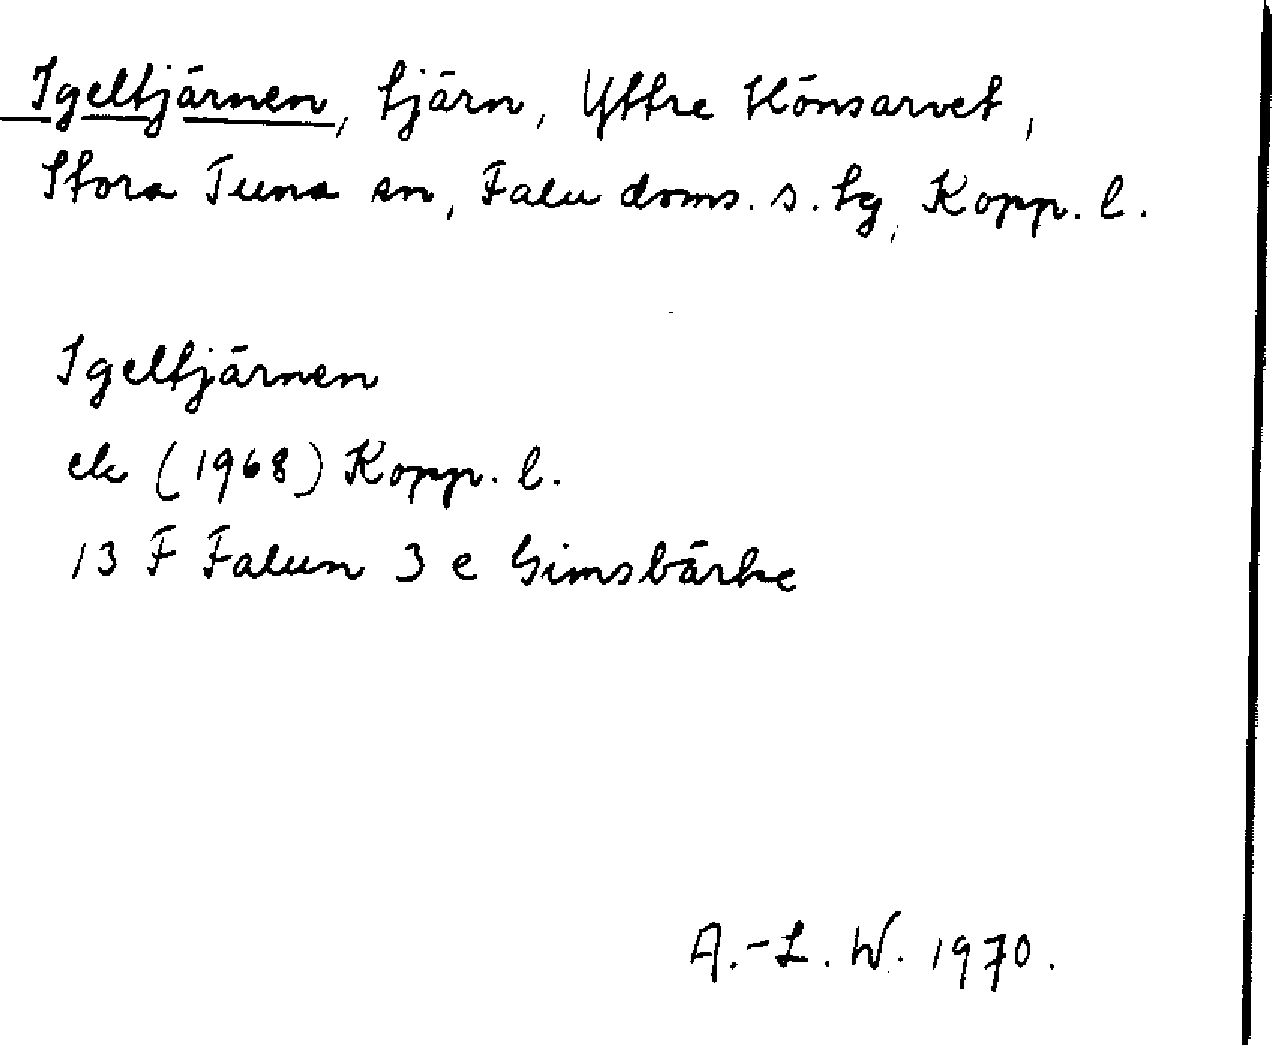 Igeltjärnen, tjärn, Yttre Hönsarvet,
Stora Tuna sn, Falu doms. s. tg, Kopp. l.
Igeltjärnen
ek (1968) Kopp. l.
13 F Falun 3 e Gimsbärke
A.-L. W. 1970.